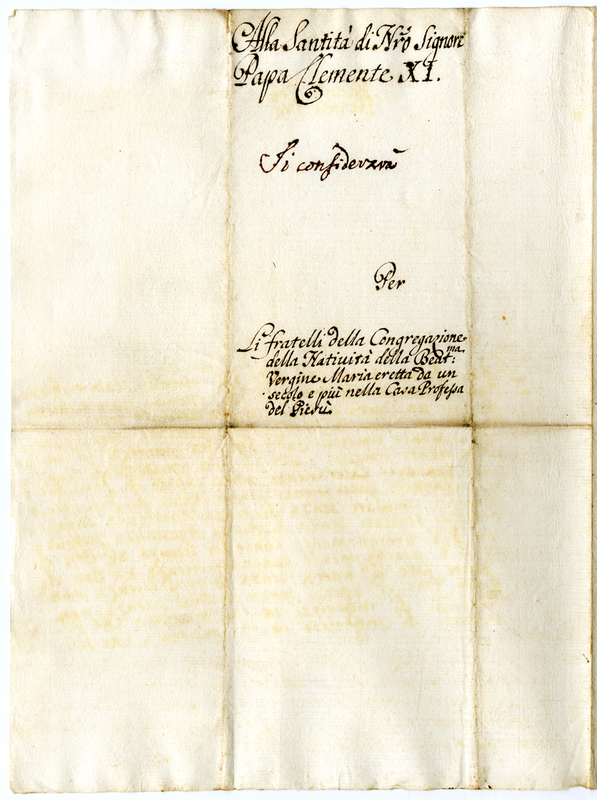 Alla Santità di Nrõ Signore
Papa Clemente XI.
Si considerarà
Per
Li fratelli della Congregazione
della Natività della Beat:ma
Vergine Maria eretta da un
secolo e più nella Casa Professa
del Giesù.